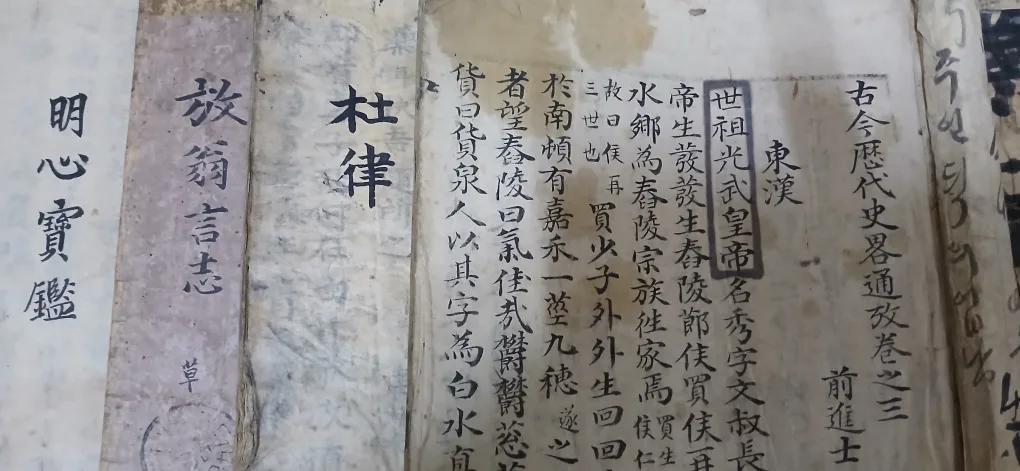 주인
古今歴代史畧通攷卷之三
前進士
東漢
世祖光武皇帝名秀字文叔長
帝生發發生舂陵節侯買侯再
水鄉為舂陵宗族徃家焉買生侯仁
故曰侯再三世也買少子外外生回回
於南頓有嘉禾一莖九穗遂之
者望舂陵曰氣佳哉欝欝葱
貨曰貨泉人以其字為白水真
杜律
放翁言志
草
明心寶鑑